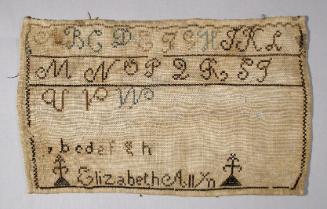 A B C D E F G H I K L
M N O P Q R S T
U V W
a b c d e f g h
Elizabeth A